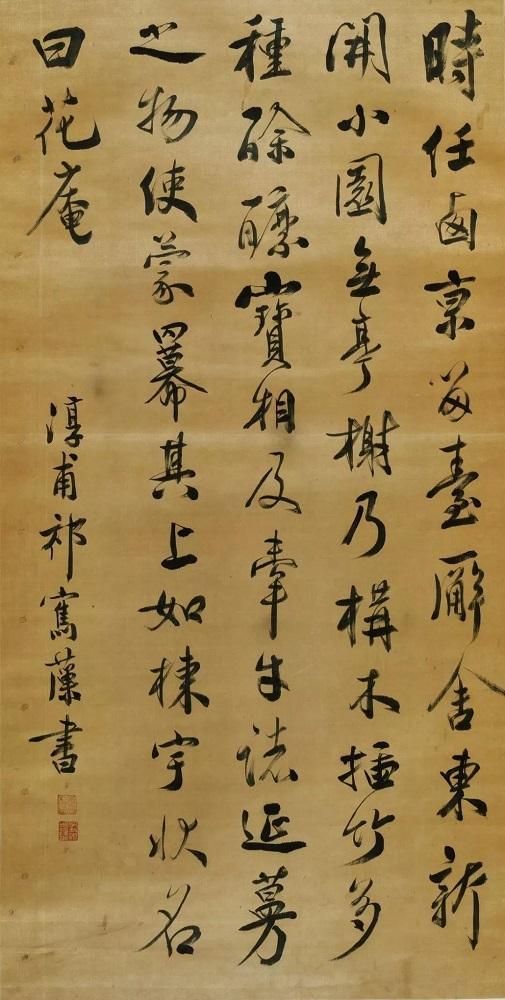 時任卥京留臺廨舍東新
開小園無亭榭乃構木插竹多
種酴醿寶相及牽牛諸延蔓
之物使蒙羃其上如棟宇狀名
曰花庵
淳甫祁寯藻書